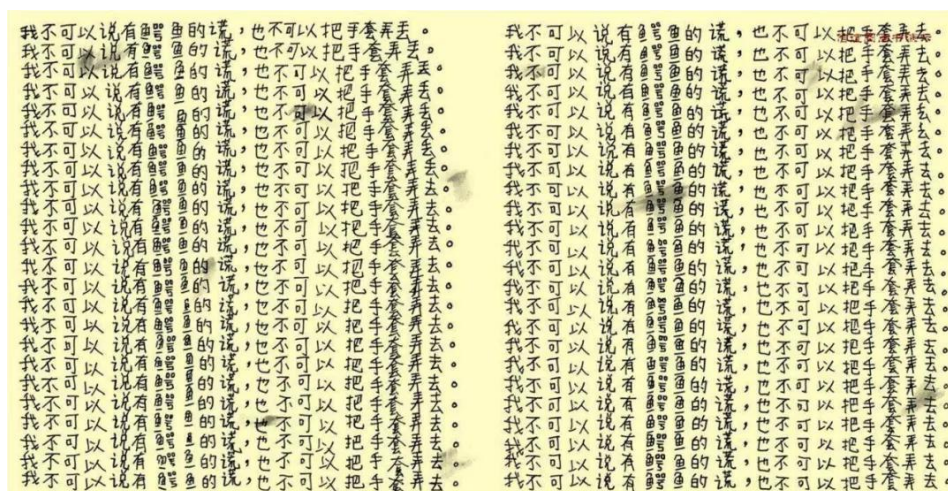 我不可以说有鳄鱼的谎，也不可以把手套弄丢。
我不可以说有鳄鱼的谎，也不可以把手套弄丢。
我不可以说有鳄鱼的谎，也不可以把手套弄丢。
我不可以说有鳄鱼的谎，也不可以把手套弄丢。
我不可以说有鳄鱼的谎，也不可以把手套弄丢。
我不可以说有鳄鱼的谎，也不可以把手套弄丢。
我不可以说有鳄鱼的谎，也不可以把手套弄丢。
我不可以说有鳄鱼的谎，也不可以把手套弄去。
我不可以说有鳄鱼的谎，也不可以把手套弄去。
我不可以说有鳄鱼的谎，也不可以把手套弄去。
我不可以说有鳄鱼的谎，也不可以把手套弄去。
我不可以说有鳄鱼的谎，也不可以把手套弄去。
我不可以说有鳄鱼的谎，也不可以把手套弄去。
我不可以说有鳄鱼的谎，也不可以把手套弄去。
我不可以说有鳄鱼的谎，也不可以把手套弄去。
我不可以说有鳄鱼的谎，也不可以把手套弄去。
我不可以说有鳄鱼的谎，也不可以把手套弄去。
我不可以说有鳄鱼的谎，也不可以把手套弄去。
我不可以说有鳄鱼的谎，也不可以把手套弄去。
我不可以说有鳄鱼的谎，也不可以把手套弄去。
我不可以说有鳄鱼的谎，也不可以把手套弄去。
我不可以说有鳄鱼的谎，也不可以把手套弄去。
我不可以说有鳄鱼的谎，也不可以把手套弄去。
我不可以说有鳄鱼的谎，也不可以把手套弄去。
我不可以说有鳄鱼的谎，也不可以把手套弄去。
我不可以说有鳄鱼的谎，也不可以把手套弄去。
我不可以说有鳄鱼的谎，也不可以把手套弄去。
我不可以说有鳄鱼的谎，也不可以把手套弄去。
我不可以说有鳄鱼的谎，也不可以把手套弄去。
我不可以说有鳄鱼的谎，也不可以把手套弄去。
我不可以说有鳄鱼的谎，也不可以把手套弄去。
我不可以说有鳄鱼的谎，也不可以把手套弄去。
我不可以说有鳄鱼的谎，也不可以把手套弄去。
我不可以说有鳄鱼的谎，也不可以把手套弄去。
我不可以说有鳄鱼的谎，也不可以把手套弄去。
我不可以说有鳄鱼的谎，也不可以把手套弄去。
我不可以说有鳄鱼的谎，也不可以把手套弄去。
我不可以说有鳄鱼的谎，也不可以把手套弄去。
我不可以说有鳄鱼的谎，也不可以把手套弄去。
我不可以说有鳄鱼的谎，也不可以把手套弄去。
我不可以说有鳄鱼的谎，也不可以把手套弄去。
我不可以说有鳄鱼的谎，也不可以把手套弄去。
我不可以说有鳄鱼的谎，也不可以把手套弄去。
我不可以说有鳄鱼的谎，也不可以把手套弄去。
我不可以说有鳄鱼的谎，也不可以把手套弄去。
我不可以说有鳄鱼的谎，也不可以把手套弄去。
我不可以说有鳄鱼的谎，也不可以把手套弄去。
我不可以说有鳄鱼的谎，也不可以把手套弄去。